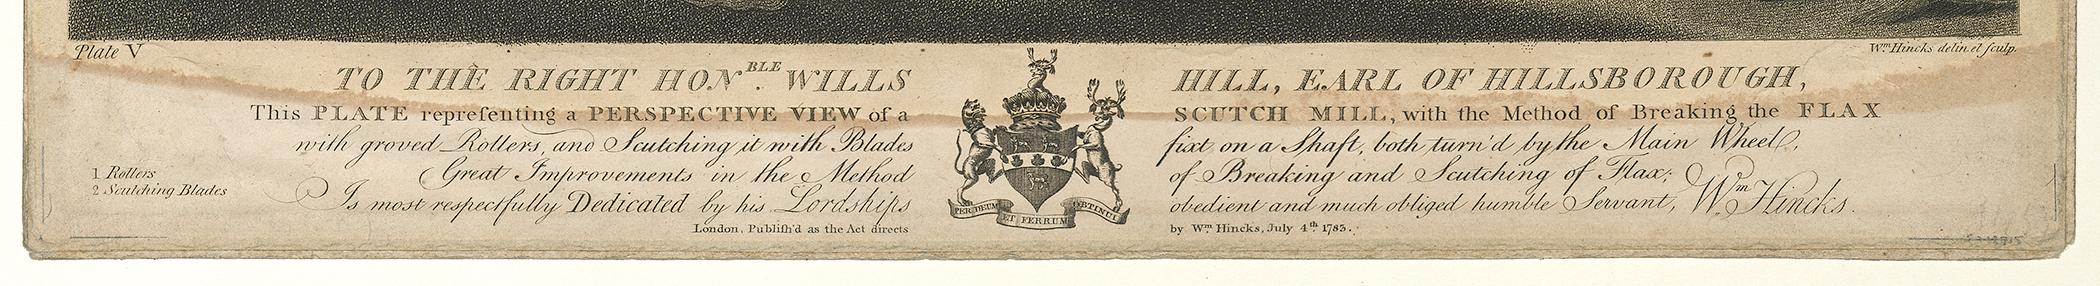 Plate V
Wm. Hincks delin. et sculp.
TO THE RIGHT HONBLE. WILLS HILL, EARL OF HILLSBOROUGH,
This PLATE repreſenting a PERSPECTIVE VIEW of a SCUTCH MILL, with the Method of Breaking the FLAX
with groved Rollers, and Scutching it with Blades fixt on a Shaft, both turn'd by the Main Wheel,
1 Rollers
2 Scutching Blades
Great Improvements in the Method of Breaking and Scutching of Flax;
Is most respectfully Dedicated by his Lordships obedient and much obliged humble Servant, Wm. Hincks.
PER DEUM ET FERRUM OBTINUI
London, Publiſh'd as the Act directs by Wm. Hincks, July 4th. 1783.